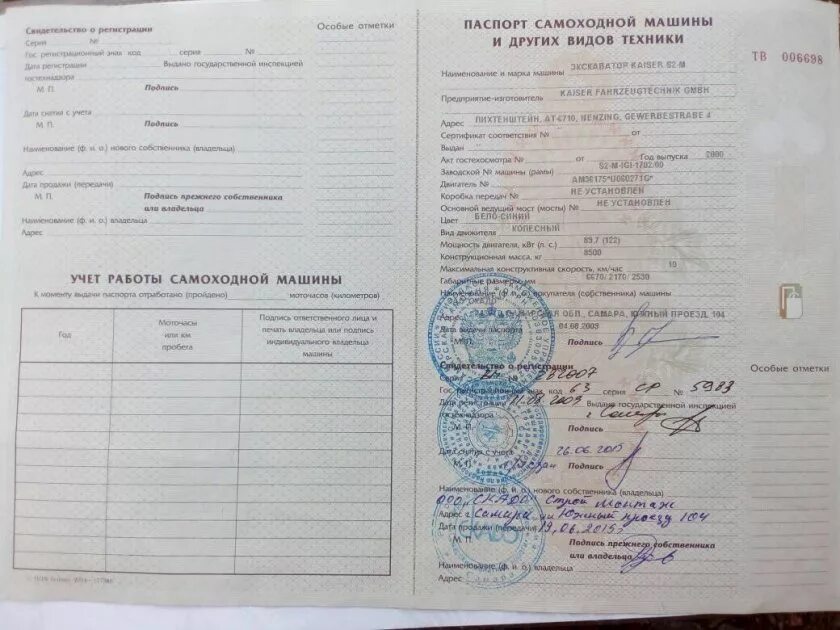 Свидетельство о регистрации
Особые отметки
Серия №
Гос. регистрационный знак код серия №
Дата регистрации Выдано государственной инспекцией
гостехнадзора
М. П. Подпись
Дата снятия с учета
М. П. Подпись
Наименование (ф. и о.) нового собственника (владельца)
Адрес
Дата продажи (передачи)
М. П. Подпись прежнего собственника
или владельца
Наименование (ф. и о.) владельца
Адрес
УЧЕТ РАБОТЫ САМОХОДНОЙ МАШИНЫ
К моменту выдачи паспорта отработано (пройдено) моточасов (километров)
Год
Моточасы
или км
пробега
Подпись ответственного лица и
печать владельца или подпись
индивидуального владельца
машины
ПАСПОРТ САМОХОДНОЙ МАШИНЫ
И ДРУГИХ ВИДОВ ТЕХНИКИ
ТВ 006698
Наименование и марка машины ЭКСКАВАТОР KAISER S2-M
Предприятие-изготовитель KAISER FAHRZEUGTECHNIK GMBH
Адрес ЛИХТЕНШТЕЙН, AT4710, NENZING, GEWERBESTRABE 4
Сертификат соответствия № от
Выдан
Акт гостехосмотра № от Год выпуска 2000
Заводской № машины (рамы) S2-M-IGI-1702/00
Двигатель № AM30175*U060271G*
Коробка передач № НЕ УСТАНОВЛЕН
Основной ведущий мост (мосты) № НЕ УСТАНОВЛЕН
Цвет БЕЛО-СИНИЙ
Вид движителя КОЛЕСНЫЙ
Мощность двигателя, кВт (л. с.) 89,7 (122)
Конструкционная масса, кг 8500
Максимальная конструктивная скорость, км/час 10
Габаритные размеры, мм 6670/ 2170/ 2530
Наименование (ф. и о.) покупателя (собственника) машины
Адрес ОБЛ., САМАРА, ЮЖНЫЙ ПРОЕЗД, 104
Дата выдачи паспорта 04.08.2003
М. П. Подпись
Свидетельство о регистрации
Особые отметки
Серия №
Гос. регистрационный знак код 63 серия СР № 5983
Дата регистрации Выдано государственной инспекцией
гостехнадзора г Самара
Подпись
Дата снятия с учета 26.06.2015
М. П. Подпись
Наименование (ф. и о.) нового собственника (владельца)
ООО „СКАДО" Строй Монтаж
Адрес г. Самара, Южный проезд 104
Дата продажи (передачи) 19.06.2015г
М. П. Подпись прежнего собственника
или владельца
Наименование (ф. и о.) владельца
Адрес